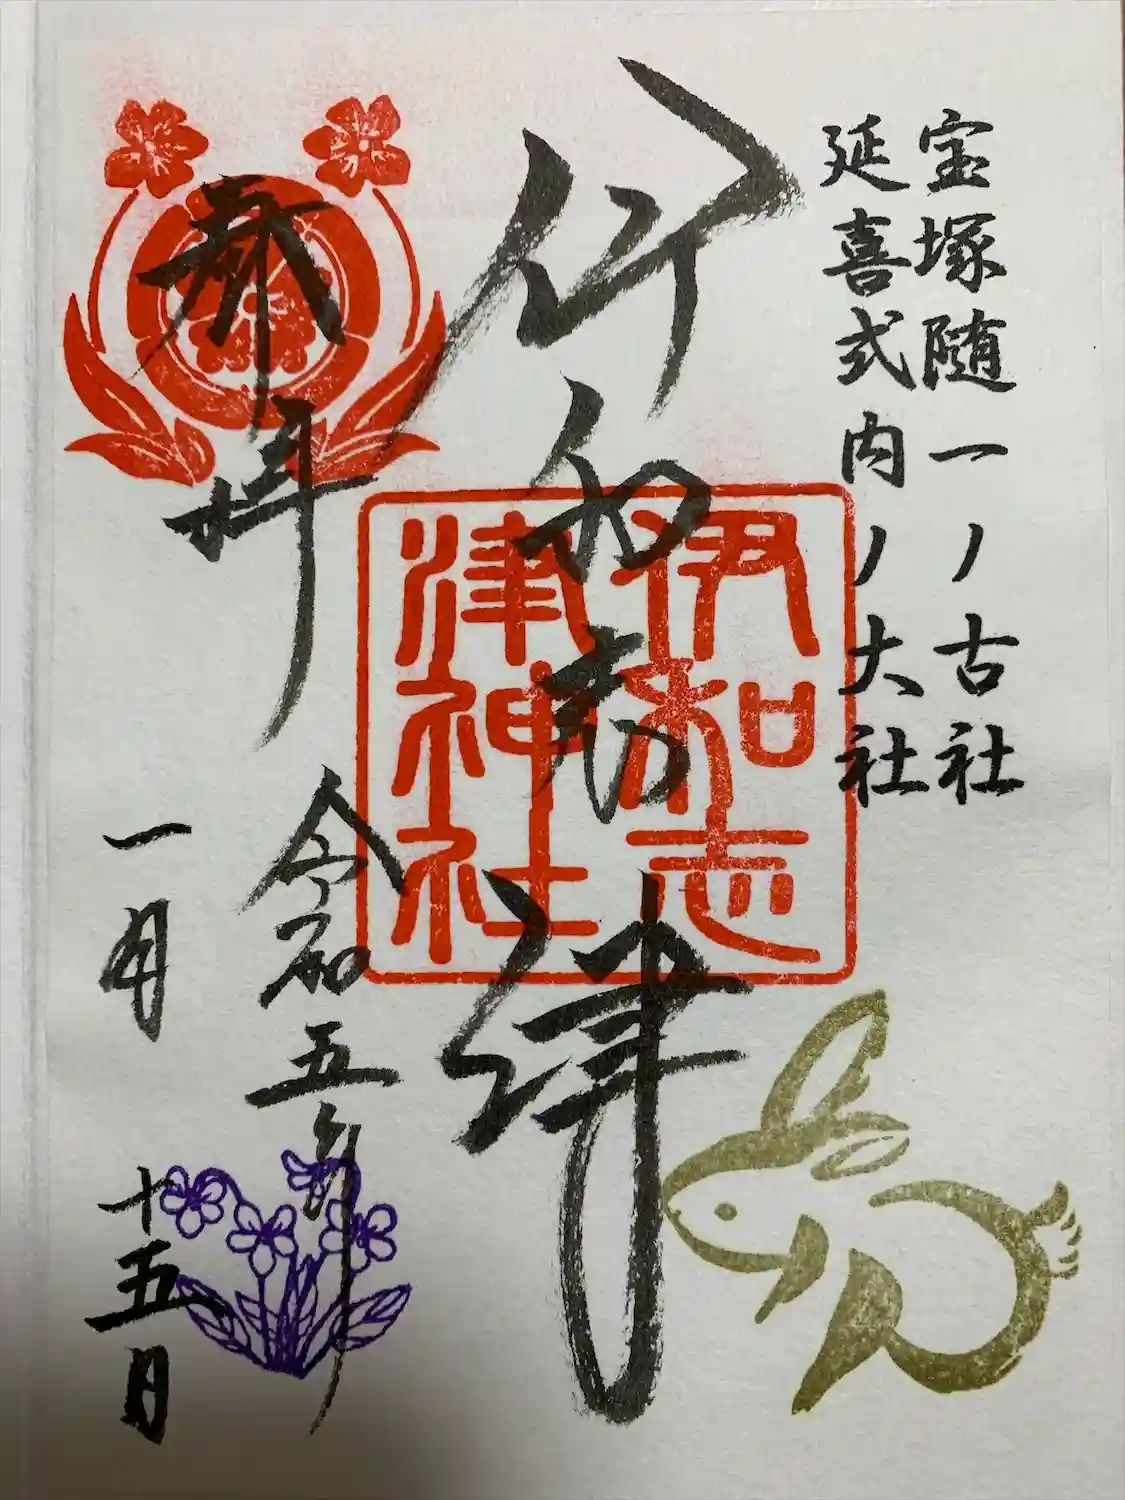 宝塚随一ノ古社
延喜式内ノ大社
伊和志津
伊和志
津神社
奉拝
令和五年
一月十五日